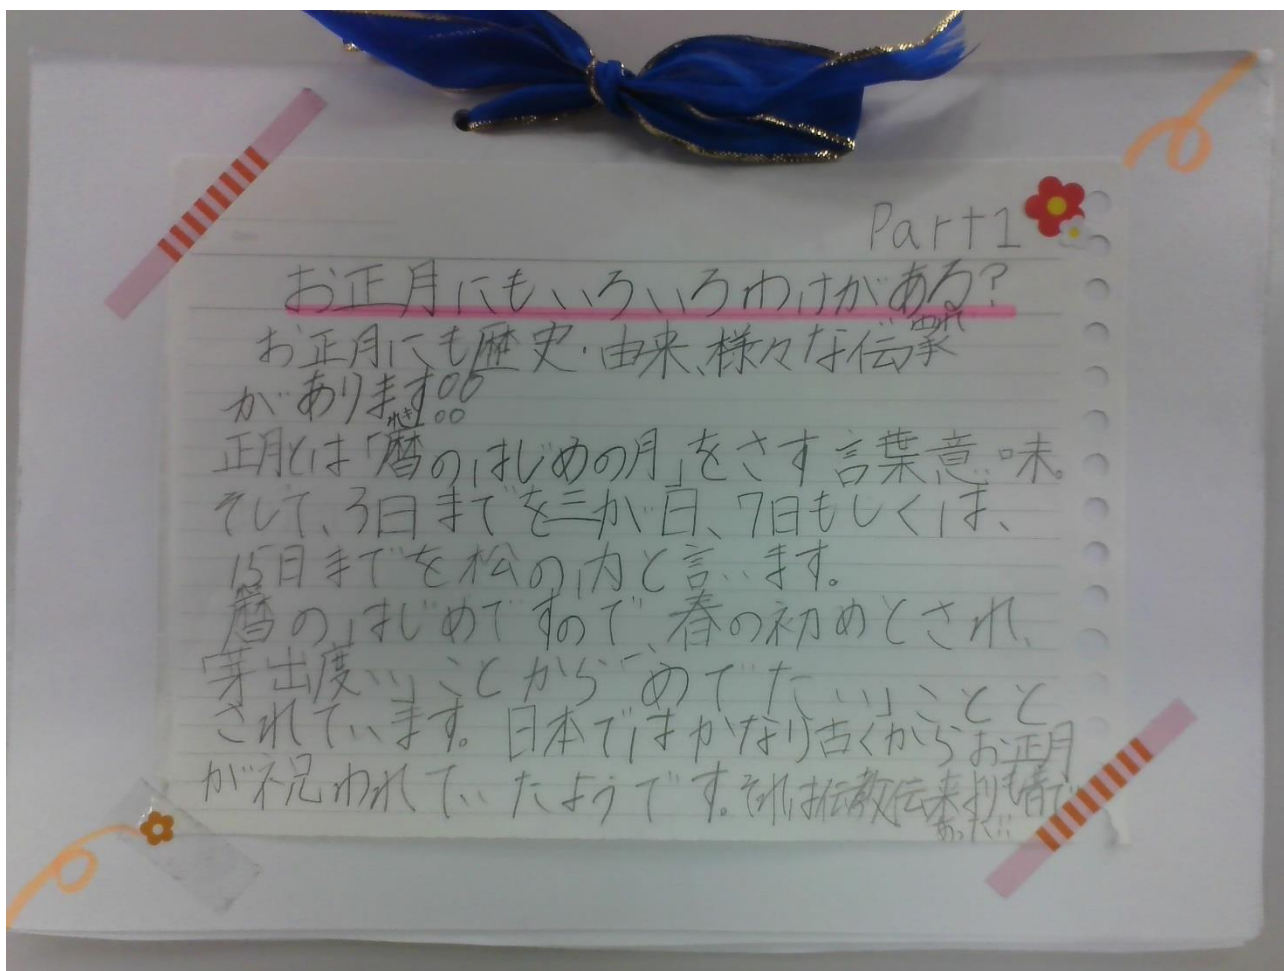 Part1
お正月にもいろいろわけがある?
お正月にも歴史・由来、様々な伝承
があります!!
正月とは「暦のはじめの月」をさす言葉意味。
そして、3日までを三が日、7日もしくは、
15日までを松の内と言います。
暦のはじめですので、春の初めとされ、
「芽出度い」ことから「めでたい」ことと
されています。日本ではかなり古くからお正月
が祝われていたようです。それは仏教伝来よりも昔で
あった!!